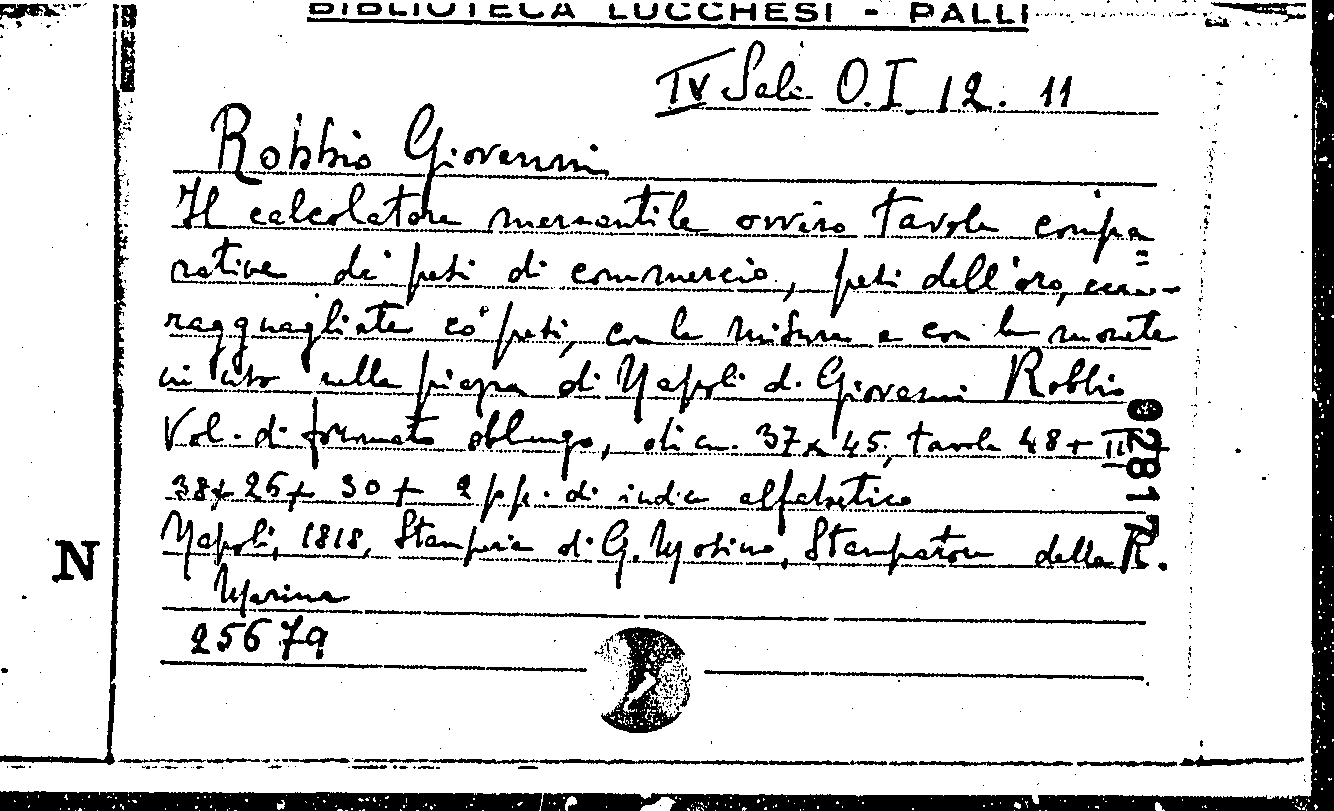 BIBLIOTECA LUCCHESI - PALLI
IV Sala O.I. 12. 11
Robbio Giovanni
Il calcolatore mercantile ovvero tavole compa=
rative de' pesi di commercio, pesi dell'oro,
ragguagliate co' pesi, con le misure e con le monete
in uso nella piazza di Napoli di Giovanni Robbio
Vol. di formato oblungo, di cm. 37x45, tavole 48+II+
38+26+30+2 pp. di indice alfabetico
Napoli, 1818, Stamperia di G. Mosino, Stampatore della R.
Marina
25679
N
02817